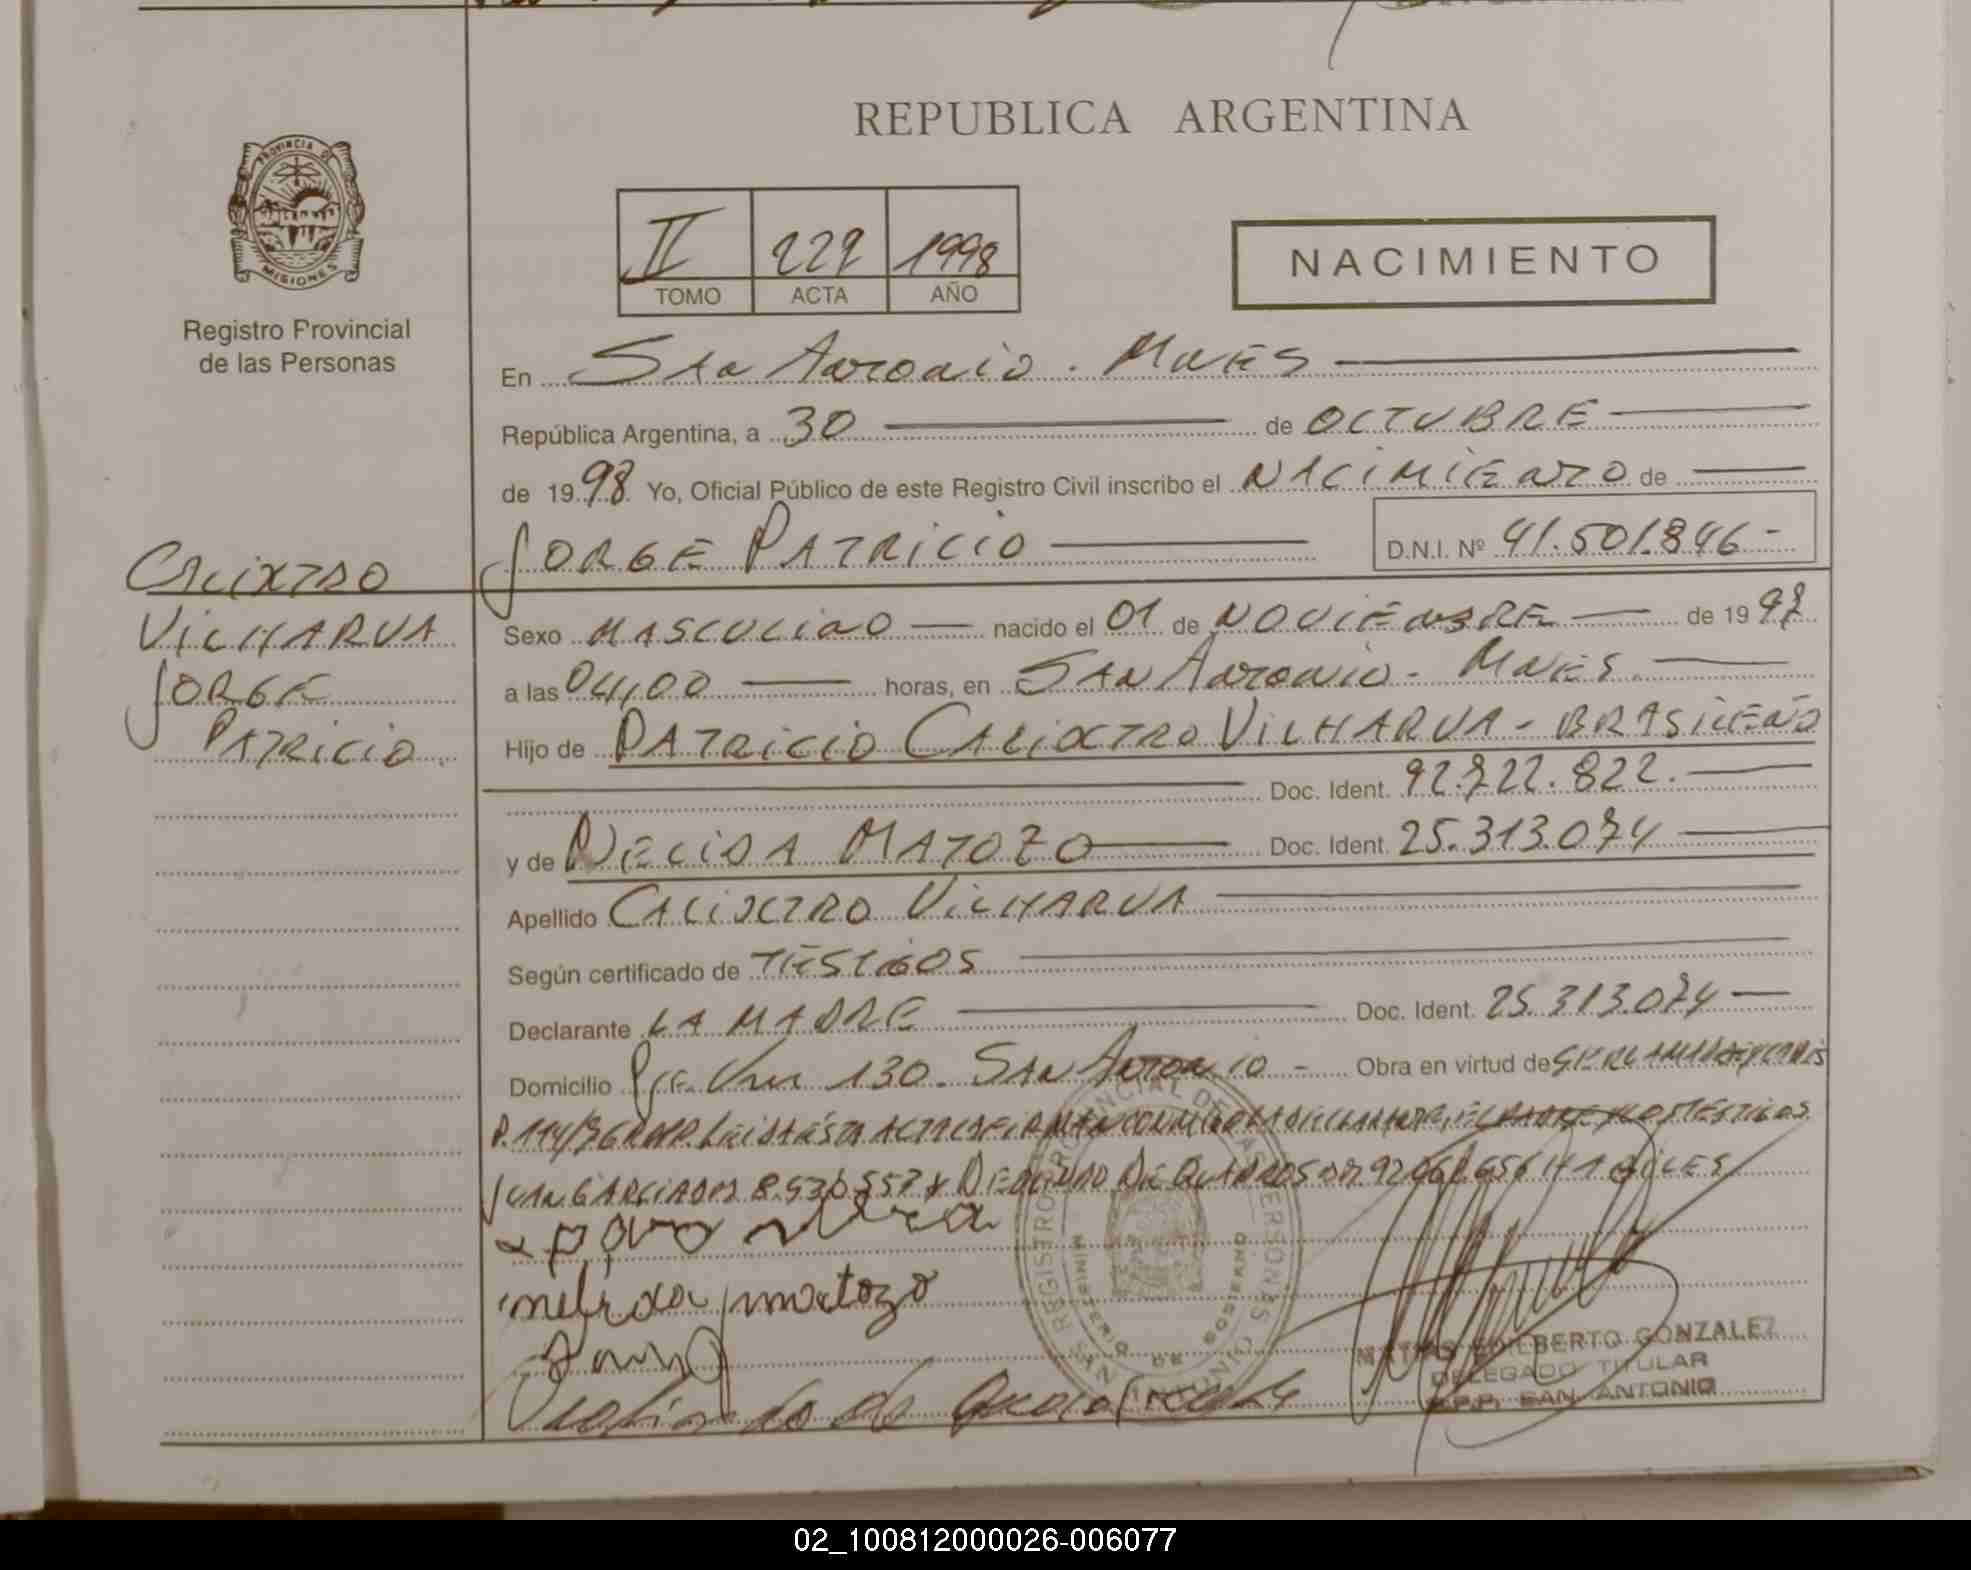 REPUBLICA ARGENTINA
PROVINCIA DE
MISIONES
Registro Provincial
de las Personas
II 222 1998
TOMO ACTA AÑO
NACIMIENTO
En San Antonio - Mnes
República Argentina, a 30 de OCTUBRE
de 1998 Yo, Oficial Público de este Registro Civil inscribo el NACIMIENTO de
JORGE PATRICIO D.N.I. Nº 41.501.846-
CALIXTRO
VILHARVA
JORGE
PATRICIO
Sexo MASCULINO nacido el 01 de NOVIEMBRE de 1997
a las 04,00 horas, en SAN Antonio - Mnes
Hijo de PATRICIO CALIXTRO VILHARVA - BRASILEÑO
Doc. Ident. 92.722.822.
y de NELIDA MATOZO Doc. Ident. 25.313.074
Apellido CALIXTRO VILHARVA
Según certificado de TESTIGOS
Declarante LA MADRE Doc. Ident. 25.313.074
Domicilio 130. SAN Antonio - Obra en virtud de
LEIDA ESTA ACTA LA FIRMAN CONMIGO LA DECLARANTE, EL PADRE Y LOS TESTIGOS
JUAN GARCIA DNI 8.536.557 Y DE QUADROS
nelida matozo
de
REGISTRO PROVINCIAL DE LAS PERSONAS
MINISTERIO DE GOBIERNO
SAN ANTONIO
MATIAS EDILBERTO GONZALEZ
DELEGADO TITULAR
R.P.P. SAN ANTONIO
02_100812000026-006077